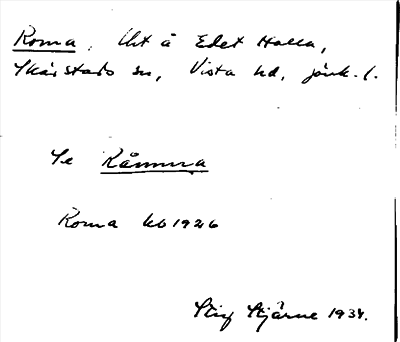 Roma, Lht å Edet Halla,
Skärstads sn, Vista hd, Jönk. l.
Se Råmma
Roma kb 1926
Stig Stjärne 1934.